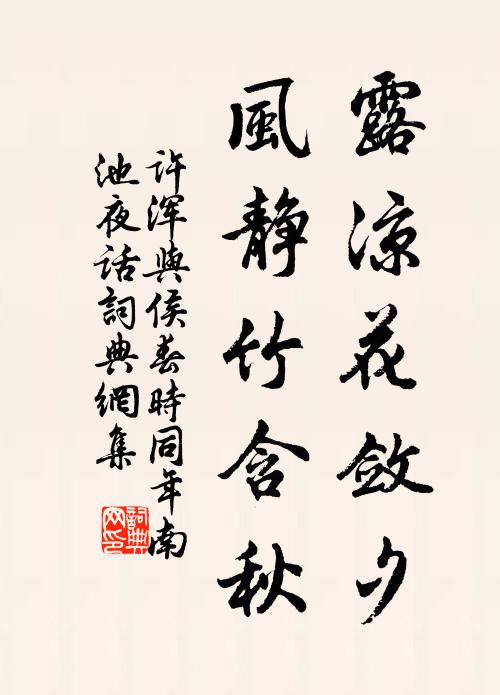 露涼花斂夕
風静竹含秋
許渾與侯春時同年南
池夜話詞典網集
詞典
网印